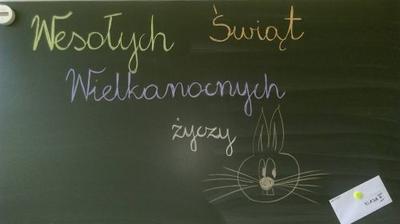 Wesołych Świąt
Wielkanocnych
życzy